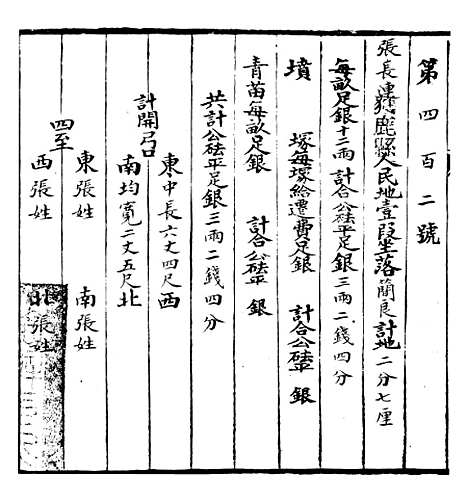 第四百二號
張長連獲鹿縣人民地壹段坐落簡良計地二分七厘
每畝足銀十二兩計合公砝平足銀三兩二錢四分
墳 塚每塚給遷費足銀 計合公砝平 銀
青苗每畝足銀 計合公砝平 銀
共計公砝平足銀三兩二錢四分
計開弓口 東中長六丈四尺西
南均寬二丈五尺北
四至 東張姓 南張姓
西張姓 北張姓